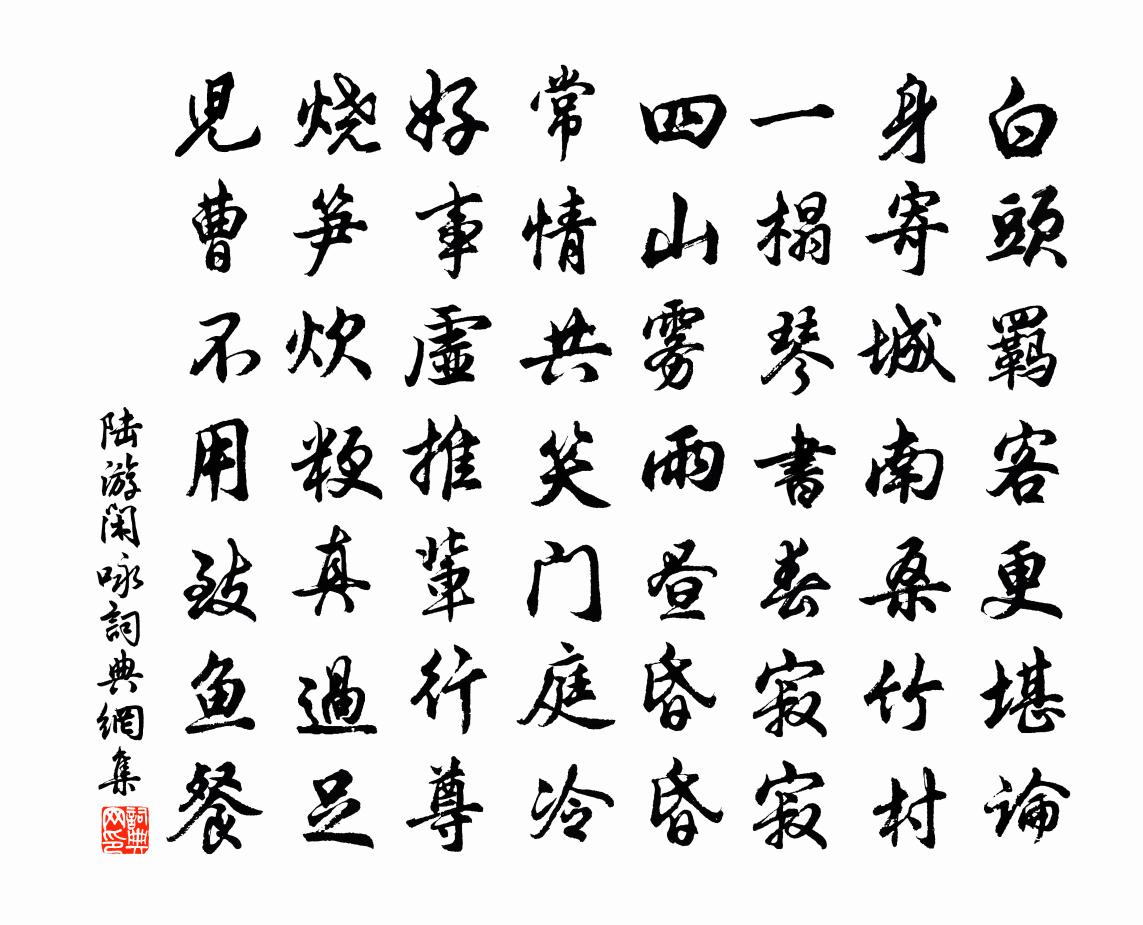 白頭羁客更堪論
身寄城南桑竹村
一榻琴書春寂寂
四山雾雨昼昏昏
常情共笑门庭冷
好事虛推輩行尊
烧笋炊粳真過足
児曹不用致鱼餐
陆游闲咏詞典網集
詞典网印